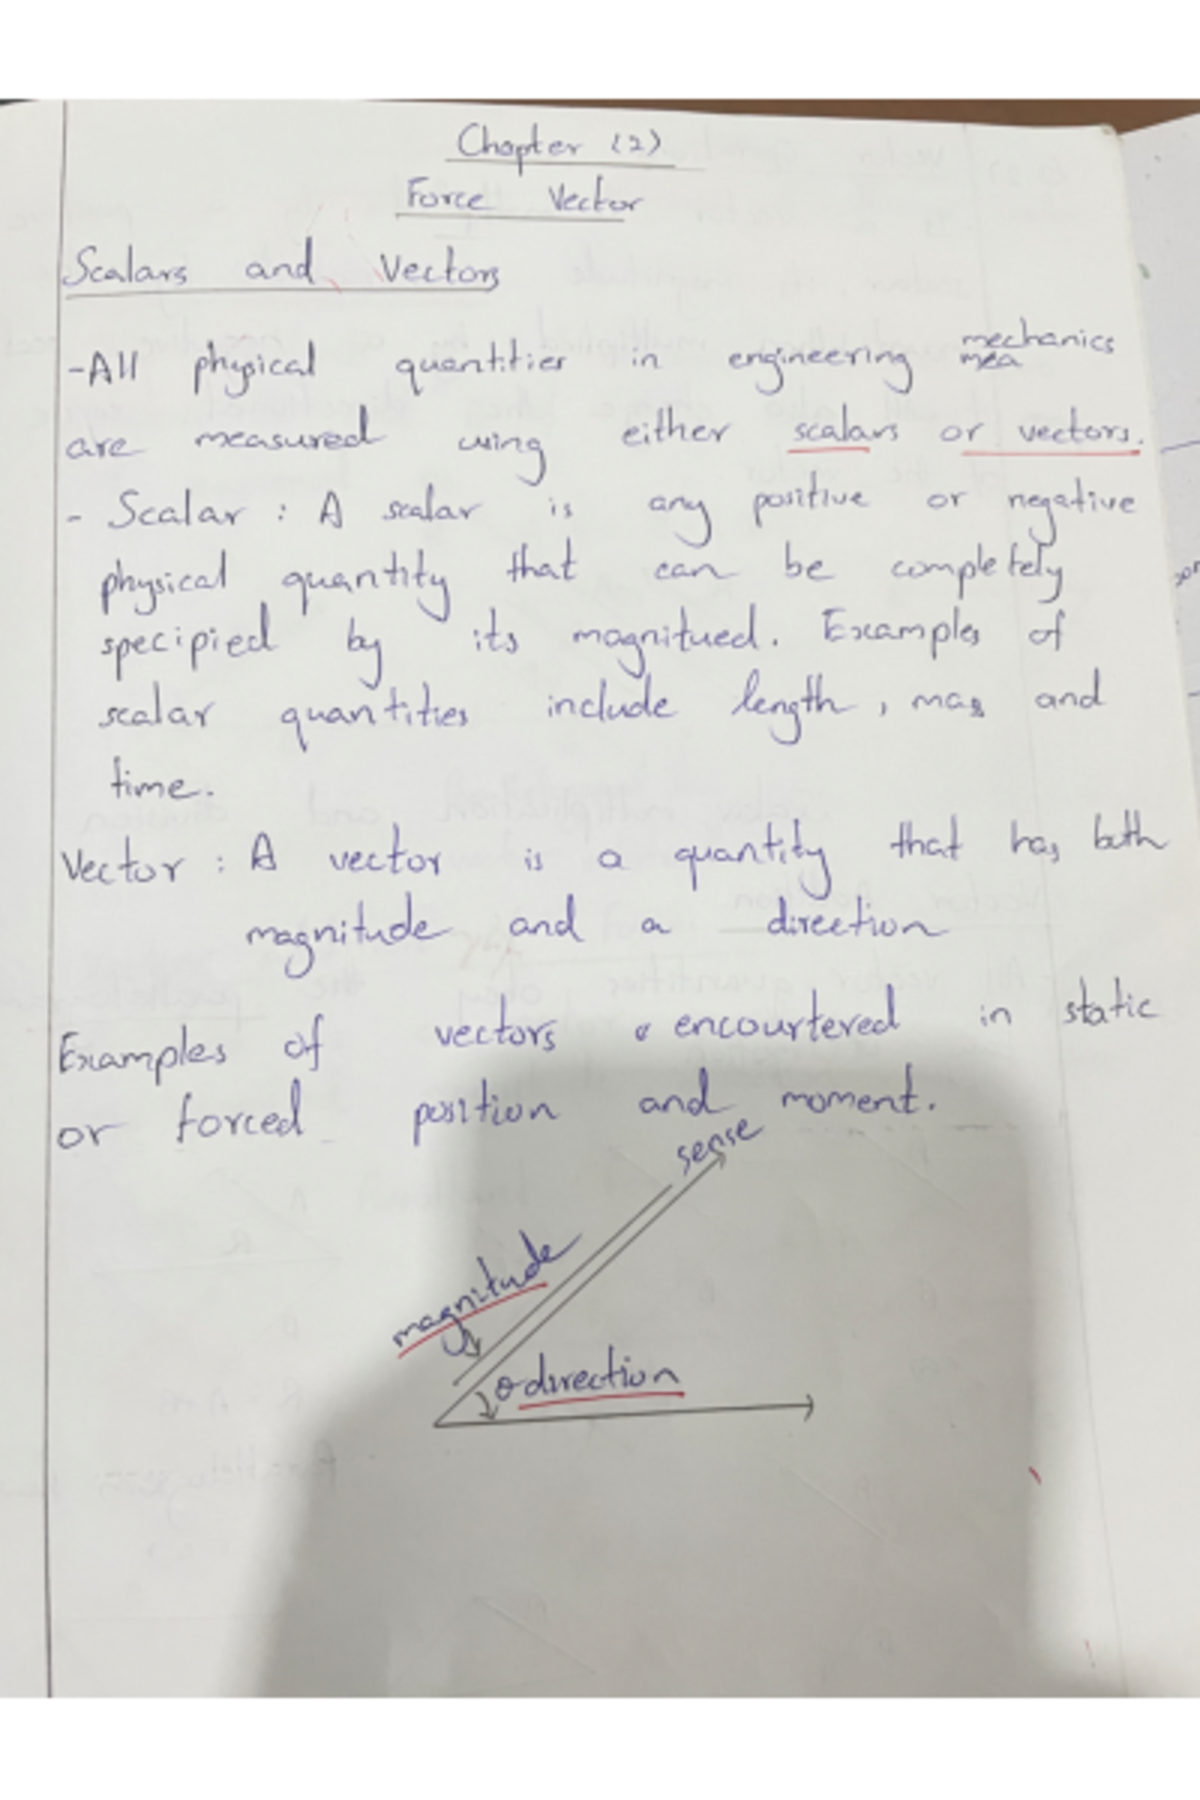 Chapter (2)
Force Vector
Scalars and Vectors
-All physical quantities in engineering mechanics
are measured using either scalars or vectors.
- Scalar : A scalar is any positive or negative
physical quantity that can be completely
specipied by its magnitued. Examples of
scalar quantities include length, mass and
time.
Vector : A vector is a quantity that has both
magnitude and a direction
Examples of vectors encourtered in static
or forced position and moment.
sense
magnitude
θ direction